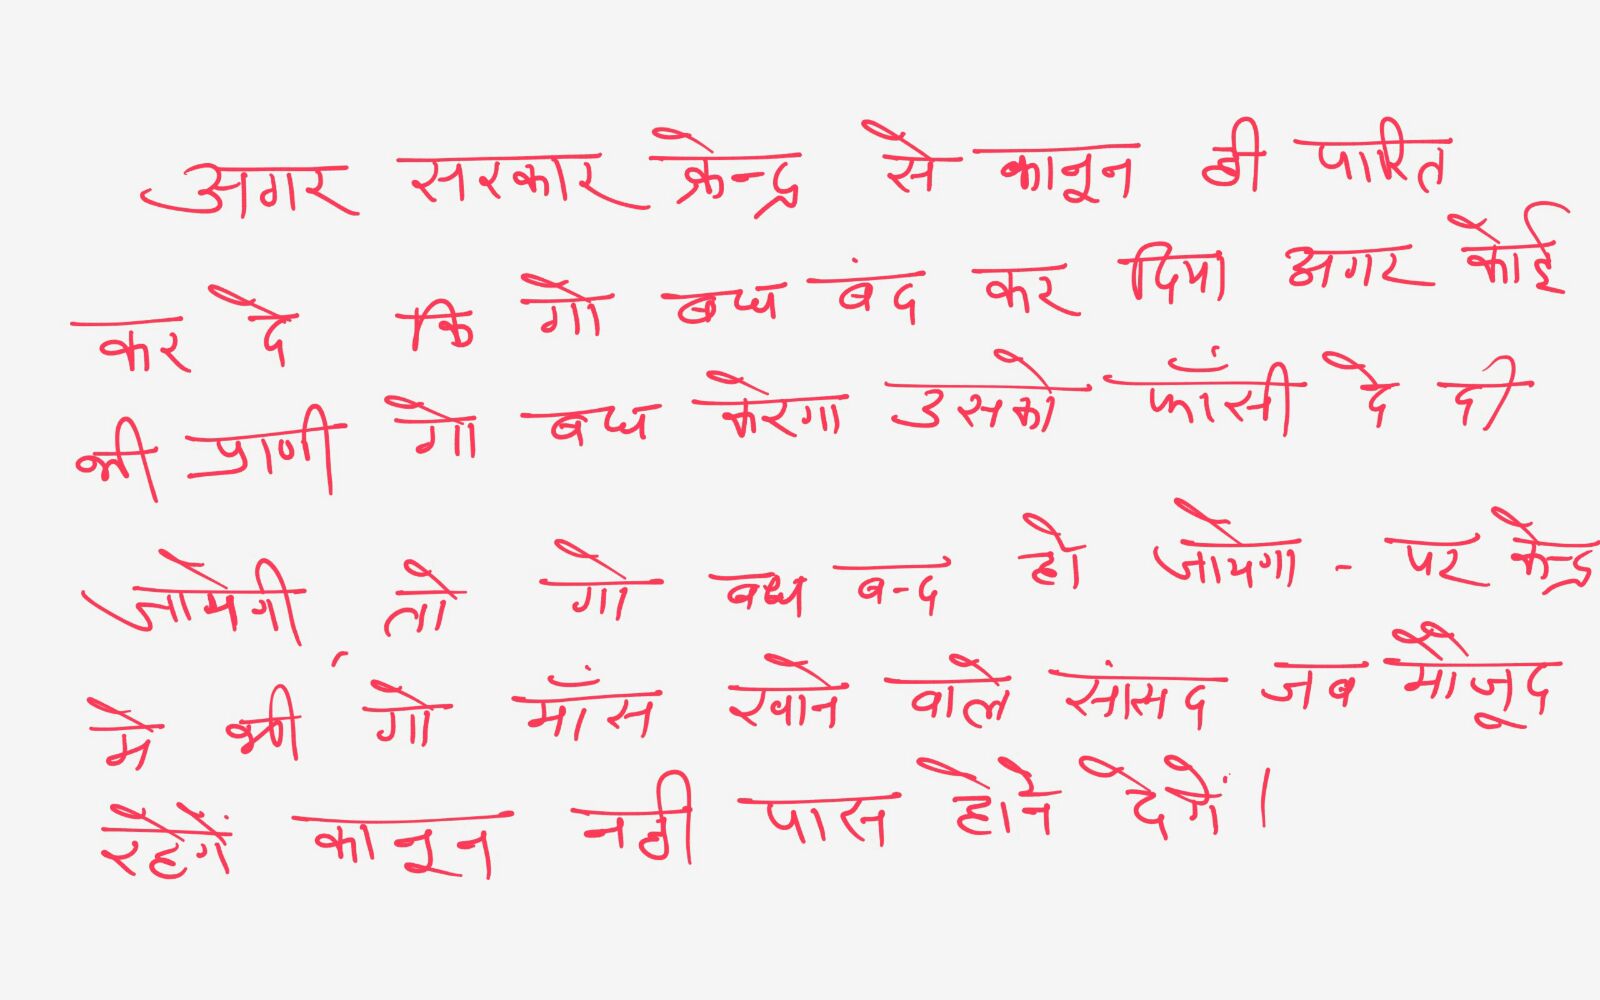 अगर सरकार केन्द्र से कानून ही पारित
कर दे कि गो बध बंद कर दिया अगर कोई
भी प्राणी गो बध करेगा उसको फाँसी दे दी
जायेगी तो गो बध बन्द हो जायेगा - पर केन्द्र
मे भी गो माँस खाने वाले सांसद जब मौजूद
रहेगें कानून नही पास होने देगें।